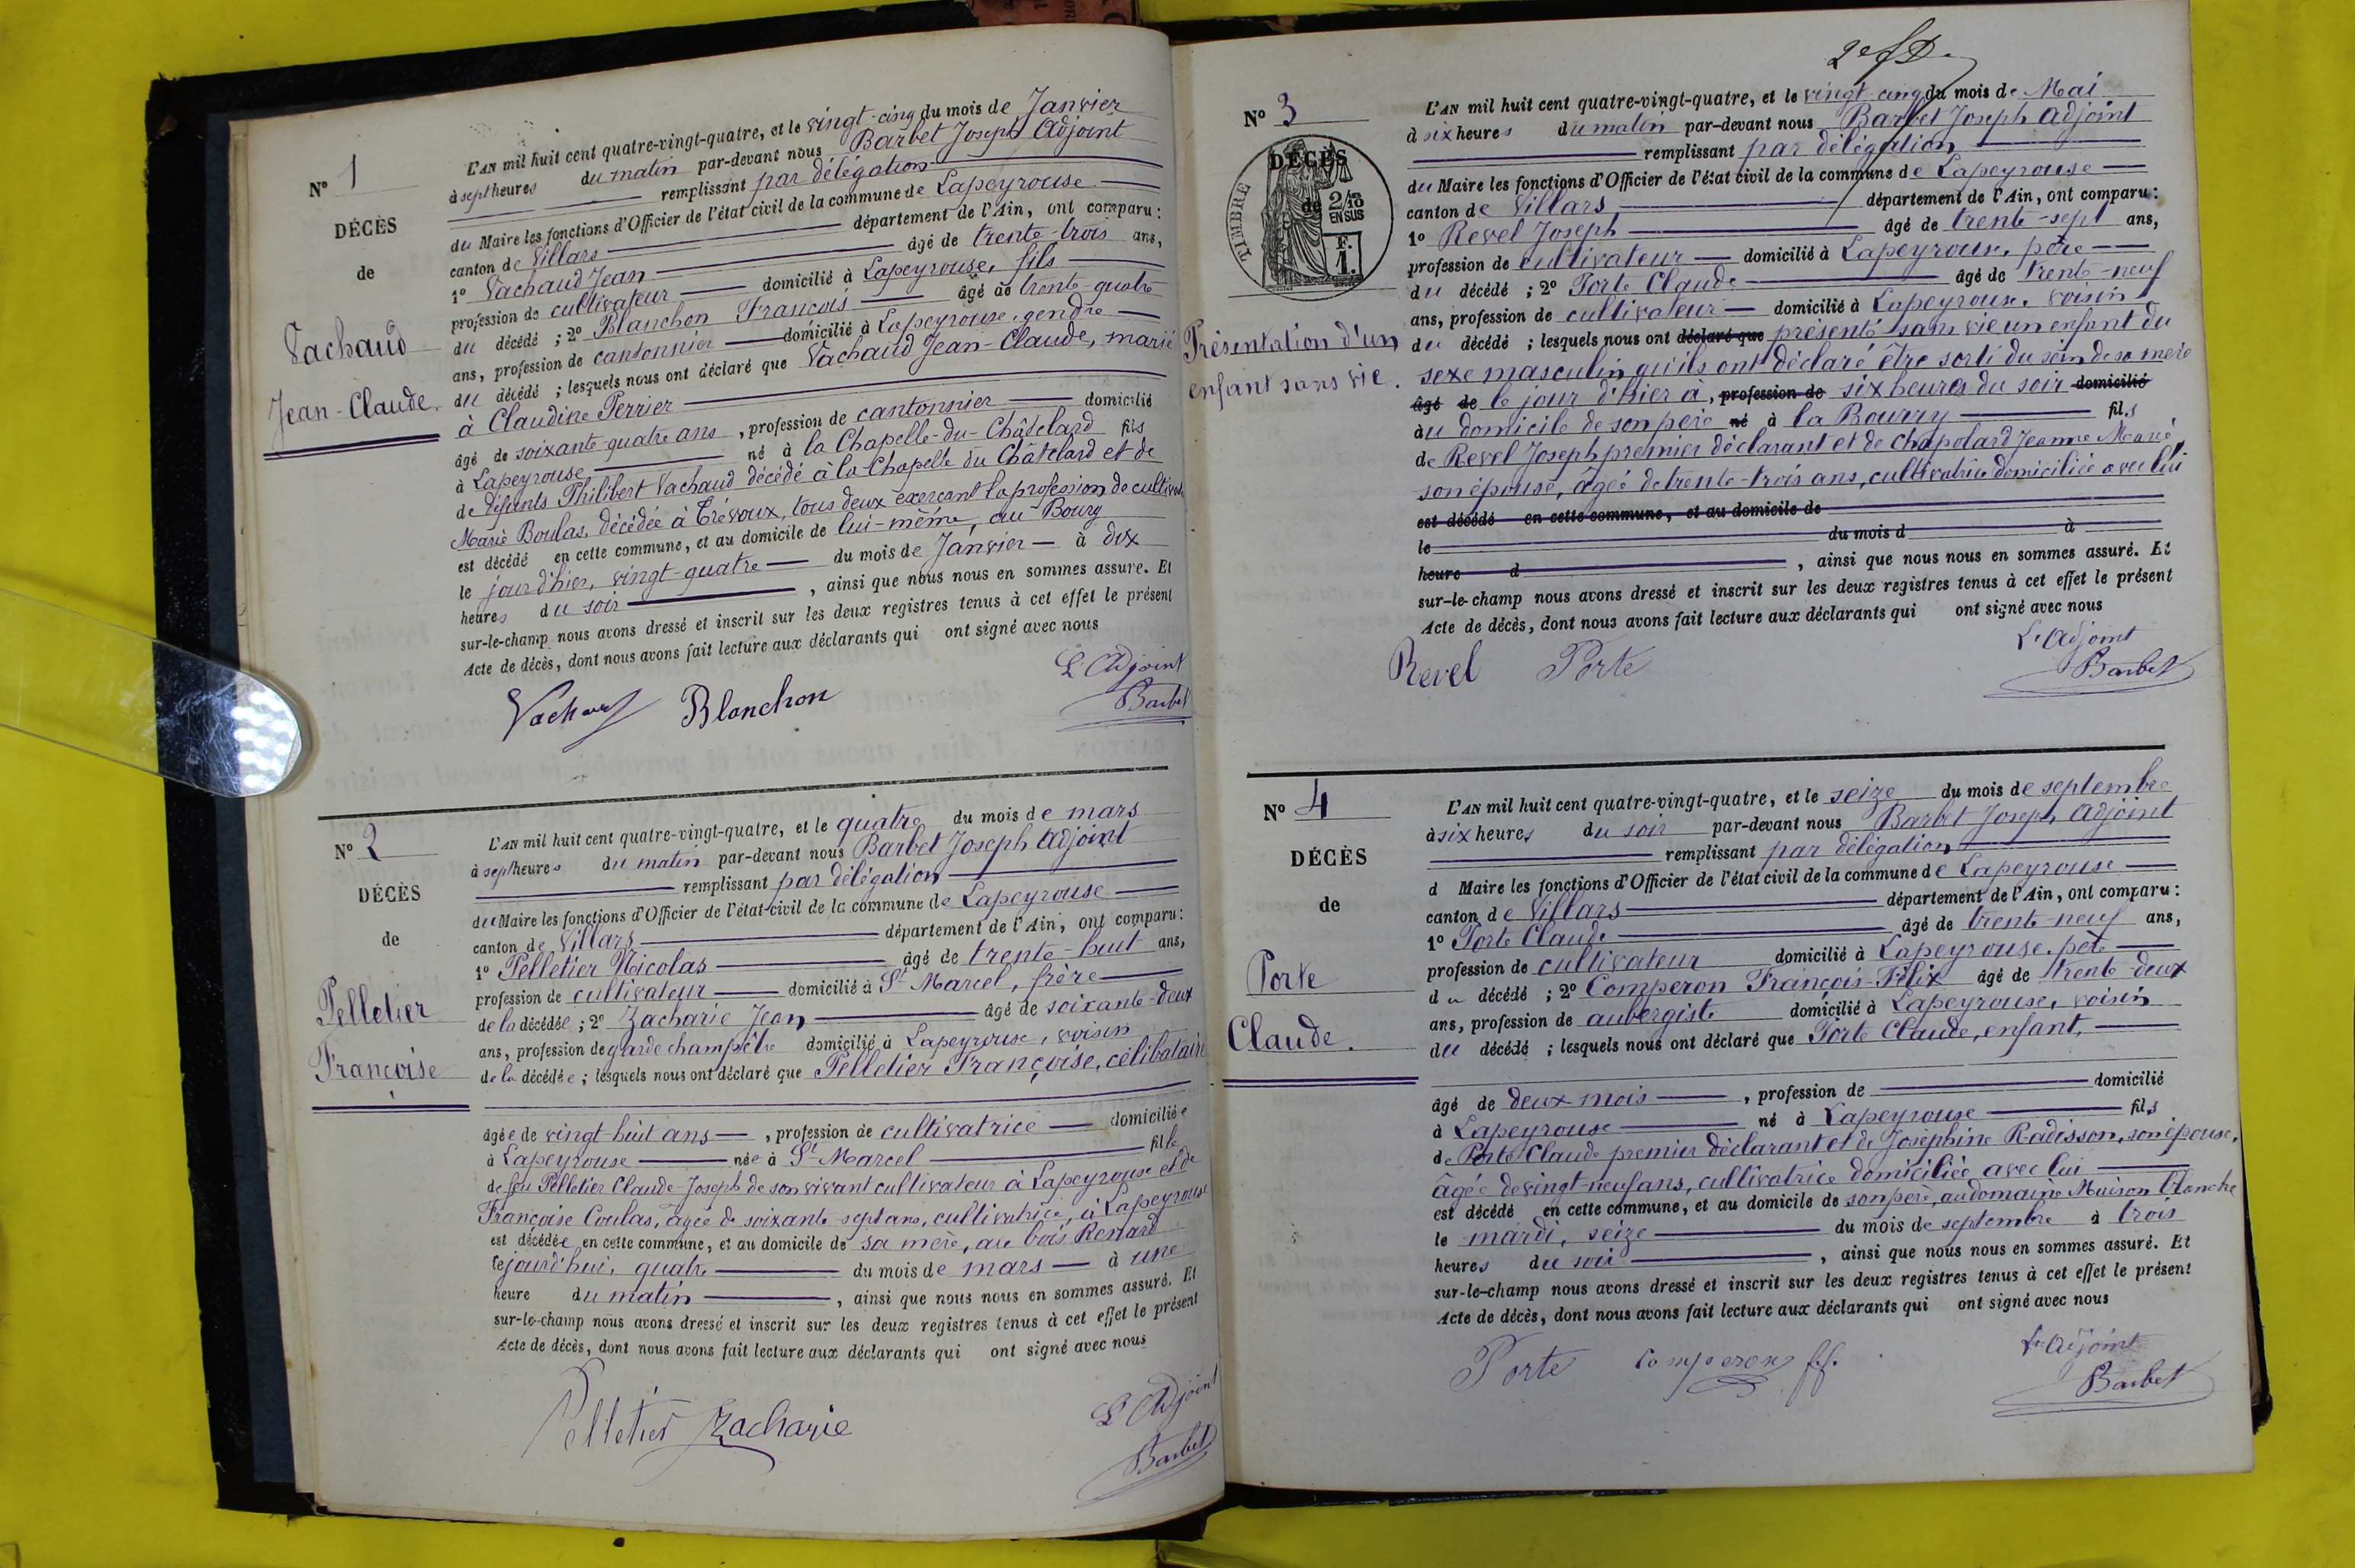 Nº 1
DÉCÈS
de
Vachaud
Jean-Claude.
L'AN mil huit cent quatre-vingt-quatre, et le vingt-cinq du mois de Janvier
à sept heures du matin par-devant nous Barbet Joseph Adjoint
remplissant par délégation
du Maire les fonctions d'Officier de l'état civil de la commune de Lapeyrouse
canton de Villars département de l'Ain, ont comparu :
1º Vachaud Jean âgé de trente-trois ans,
profession de cultivateur domicilié à Lapeyrouse, fils
du décédé ; 2º Blanchon François âgé de trente-quatre
ans, profession de cantonnier domicilié à Lapeyrouse, gendre
du décédé ; lesquels nous ont déclaré que Vachaud Jean-Claude, marié
à Claudine Perrier
âgé de soixante-quatre ans , profession de cantonnier domicilié
à Lapeyrouse né à la Chapelle-du-Châtelard fils
de défunts Philibert Vachaud décédé à la Chapelle du Châtelard et de
Marie Boulas, décédée à Trévoux, tous deux exerçant la profession de cultivat
est décédé en cette commune, et au domicile de lui-même, au Bourg
le jour d'hier, vingt-quatre du mois de Janvier à dix
heures du soir , ainsi que nous nous en sommes assuré. Et
sur-le-champ nous avons dressé et inscrit sur les deux registres tenus à cet effet le présent
Acte de décès, dont nous avons fait lecture aux déclarants qui ont signé avec nous
L'Adjoint
Vachaud Blanchon Barbet
Nº 2
DÉCÈS
de
Pelletier
Françoise
L'AN mil huit cent quatre-vingt-quatre, et le quatre du mois de mars
à sept heures du matin par-devant nous Barbet Joseph Adjoint
remplissant par délégation
du Maire les fonctions d'Officier de l'état-civil de la commune de Lapeyrouse
canton de Villars département de l'Ain, ont comparu :
1º Pelletier Nicolas âgé de trente-huit ans,
profession de cultivateur domicilié à St Marcel, frère
de la décédée ; 2º Zacharie Jean âgé de soixante-deux
ans, profession de garde champêtre domicilié à Lapeyrouse, voisin
de la décédée ; lesquels nous ont déclaré que Pelletier Françoise, célibataire
âgée de vingt-huit ans , profession de cultivatrice domiciliée
à Lapeyrouse née à St-Marcel fille
de feu Pelletier Claude-Joseph de son vivant cultivateur à Lapeyrouse et de
Françoise Coulas, âgée de soixante-sept ans, cultivatrice, à Lapeyrouse
est décédée en cette commune, et au domicile de sa mère, au bois Renard
le jourd'hui, quatre du mois de mars à une
heure du matin , ainsi que nous nous en sommes assuré. Et
sur-le-champ nous avons dressé et inscrit sur les deux registres tenus à cet effet le présent
Acte de décès, dont nous avons fait lecture aux déclarants qui ont signé avec nous
L'Adjoint
Pelletier Zacharie Barbet
Nº 3
DÉCÈS
TIMBRE
de 2/10
EN SUS
F.
1.
Présentation d'un
enfant sans vie.
L'AN mil huit cent quatre-vingt-quatre, et le vingt-cinq du mois de Mai
à six heures du matin par-devant nous Barbet Joseph Adjoint
remplissant par délégation
du Maire les fonctions d'Officier de l'état civil de la commune de Lapeyrouse
canton de Villars département de l'Ain, ont comparu :
1º Revel Joseph âgé de trente-sept ans,
profession de cultivateur domicilié à Lapeyrouse, père
du décédé ; 2º Porte Claude âgé de trente-neuf
ans, profession de cultivateur domicilié à Lapeyrouse, voisin
du décédé ; lesquels nous ont déclaré que présenté sans vie un enfant du
sexe masculin qu'ils ont déclaré être sorti du sein de sa mère
âgé de le jour d'hier à , profession de six heures du soir domicilié
au domicile de son père né à la Bourry fils
de Revel Joseph premier déclarant et de Chapolard Jeanne Marie,
son épouse, âgée de trente-trois ans, cultivatrice domiciliée avec lui
est décédé en cette commune, et au domicile de
le du mois d à
heure d , ainsi que nous nous en sommes assuré. Et
sur-le-champ nous avons dressé et inscrit sur les deux registres tenus à cet effet le présent
Acte de décès, dont nous avons fait lecture aux déclarants qui ont signé avec nous
L'Adjoint
Revel Porte Barbet
Nº 4
DÉCÈS
de
Porte
Claude.
L'AN mil huit cent quatre-vingt-quatre, et le seize du mois de septembre
à six heures du soir par-devant nous Barbet Joseph Adjoint
remplissant par délégation
d Maire les fonctions d'Officier de l'état civil de la commune de Lapeyrouse
canton de Villars département de l'Ain, ont comparu :
1º Porte Claude âgé de trente-neuf ans,
profession de cultivateur domicilié à Lapeyrouse, père
du décédé ; 2º Comperon François-Félix âgé de trente-deux
ans, profession de aubergiste domicilié à Lapeyrouse, voisin
du décédé ; lesquels nous ont déclaré que Porte Claude, enfant,
âgé de deux mois , profession de domicilié
à Lapeyrouse né à Lapeyrouse fils
de Porte Claude premier déclarant et de Joséphine Radisson, son épouse,
âgée de vingt-neuf ans, cultivatrice domiciliée avec lui
est décédé en cette commune, et au domicile de son père, au domaine Maison Blanche
le mardi, seize du mois de septembre à trois
heures du soir , ainsi que nous nous en sommes assuré. Et
sur-le-champ nous avons dressé et inscrit sur les deux registres tenus à cet effet le présent
Acte de décès, dont nous avons fait lecture aux déclarants qui ont signé avec nous
L'Adjoint
Porte Comperon f.f. Barbet